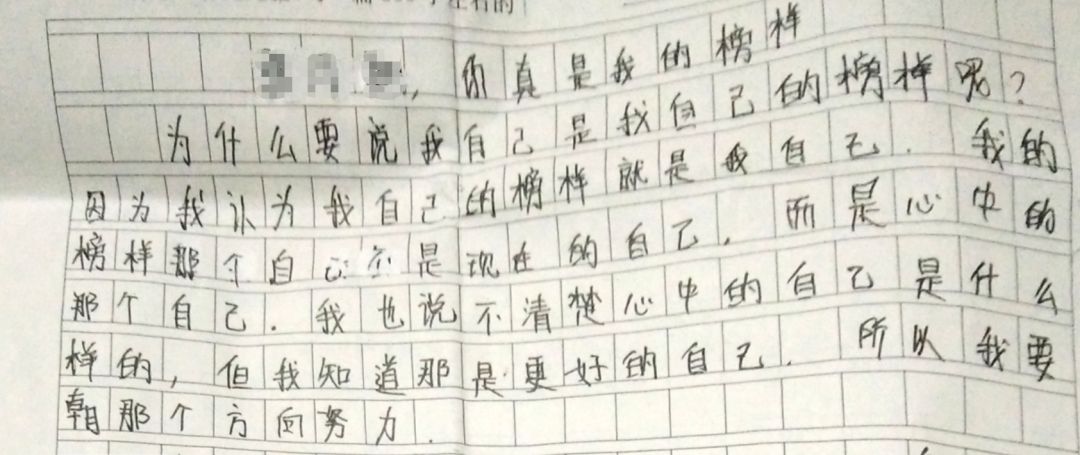 ，你真是我的榜样
为什么要说我自己是我自己的榜样呢？
因为我认为我自己的榜样就是我自己．我的
榜样那个自己不是现在的自己．而是心中的
那个自己．我也说不清楚心中的自己是什么
样的，但我知道那是更好的自己．所以我要
朝那个方向努力．